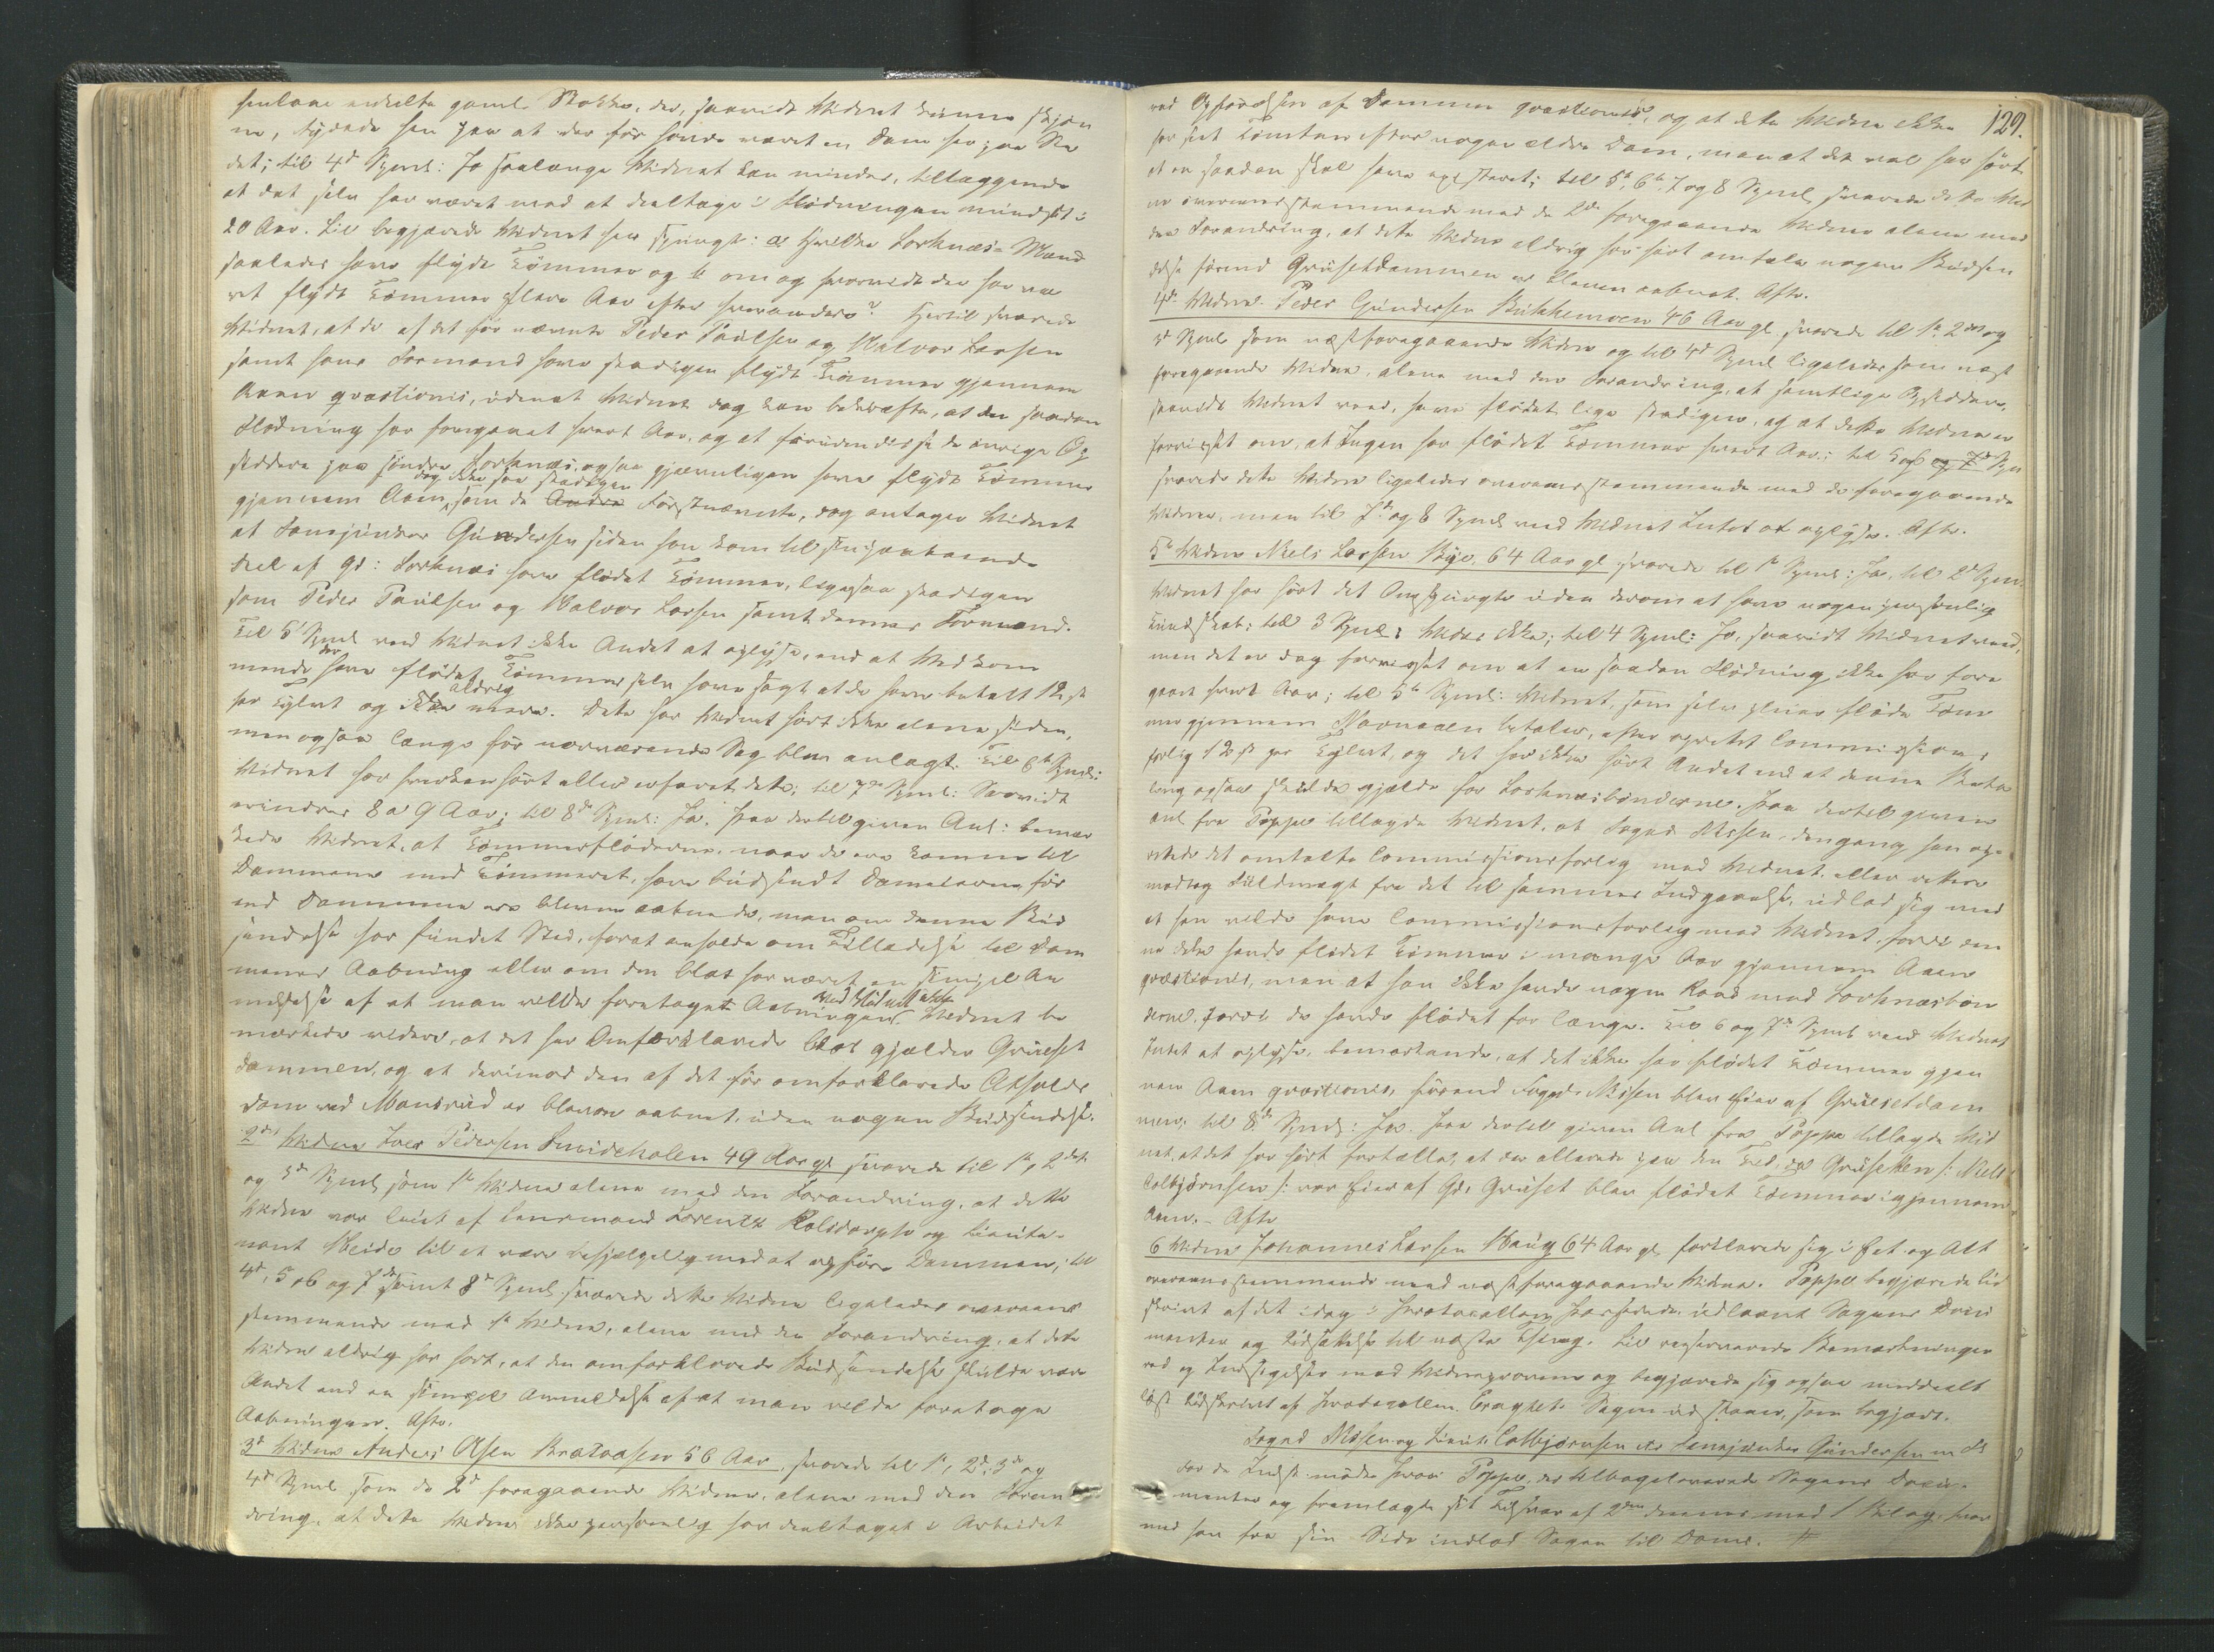 senlave enkelte gamle Stokke, der, saavidt Vidnet kunne skjøn
ne, tydede hen paa at der før havde været en Dam her paa Ste
det; til 4d Spml: Ja saalænge Vidnet kan mindes, tillæggende
at det selv har været med at deeltage i Flødningen mindst i
20 Aar. Lie begjærede Vidnet her spurgt: a hvilke Sorknæs-Mænd
saaledes have flydt Tømmer og b om og hvorvidt der har væ
ret flydt Tømmer flere Aar efter hverandre? Hertil svarede
Vidnet, at de af det før nævnte Peder Paulsen og Halvor Larsen
samt hans Formand have stadigen flydt Tømmer gjennem
Aaen qvæstionis, uden at Vidnet dog kan bekræfte, at den saadan
Flødning har foregaaet hvert Aar, og at foruden disse de øvrige Op
siddere paa søndre Sorknæs, ogsaa gjævnligen have flydt Tømmer
dog ikke saa stadigen
gjennem Aaen, som de Andre Førstnævnte, dog antager Vidnet
at Gundersen siden han kom til sin paaboende
Deel af Gd: Sorknæs have flødet Tømmer, ligesaa stadigen
som Peder Paulsen og Halvor Larsen samt dennes Formænd.
Til 5t Spml veed Vidnet ikke Andet at oplyse, end at Vedkom
mende der have flødet Tømmer selv have sagt at de have betalt 12 sk
per Tylvt og ikke aldrig mere. Dette har Vidnet hørt ikke alene siden,
men ogsaa længe før nærværende Sag blev anlagt. Til 6te Spml:
Vidnet har hverken hørt eller erfaret dette; til 7de Spml: Saavidt
erindres 8 a 9 Aar; til 8de Spml: Ja. Paa dertil given Anl: bemær
kede Vidnet, at Tømmerfløderne, naar de ere komne til
Dammene med Tømmeret, have budsendt Dameierne før
end Dammene ere blevne aabnede, men om denne Bud
sendelse har fundet Sted, for at anholde om Tilladelse til Dam
menes Aabning eller om den blot har været en simpel An
meldelse af at man vilde foretaget Aabningen, Vidnet be
mærkede videre, at det her Omforklarede blot gjælder Gruset
dammen, og at derimod den af det før omforklarede
Dam ved Monsrud er bleven aabnet, uden nogen Budsendelse.
2det Vidne Iver Pedersen Smideholen 49 Aar gl svarede til 1te, 2det
og 3d Spml som 1te Vidne alene med den Forandring, at dette
Vidne var leiet af Lensmand Lorentz og Lieute-
nant til at være behjælpelig med at opføre Dammen; til
4d, 5, 6 og 7de samt 8de Spml svarede dette Vidne ligeledes overeens
stemmende med 1te Vidne, alene med den Forandring, at dette
Vidne aldrig har hørt, at den omforklarede Budsendelse skulde være
Andet end en simpel Anmeldelse af at man vilde foretage
Aabningen. Aftr.
3d Vidne Anders Olsen Bratvasen 56 Aar, svarede til 1te, 2d, 3d og
4d Spml som de 2de foregaaende Vidner, alene med den Foran
dring, at dette Vidne ikke personlig har deeltaget i Arbeidet
129.
ved Opførelsen af Dammen qvæstionis, og at dette Vidne ikke
har seet Tomter efter nogen ældre Dam, men at det vel har hørt
at en saadan skal have existeret; til 5te, 6te, 7 og 8 Spml svarede dette Vid
ne overeensstemmende med de 2de foregaaende Vidner alene med
den Forandring, at dette Vidne aldrig har hørt omtale nogen Budsen
delse førend Grusetdammen er bleven aabnet. Aftr.
4de Vidne Peder Gundersen 46 Aar gl, svarede til 1te, 2det og
3d Spml som næstforegaaende Vidne og til 4d Spml ligeledes som næst
foregaaende Vidne, alene med den Forandring, at samtlige Opsiddere,
saavidt Vidnet veed, have flødet lige stadigen, og at dette Vidne er
forvisset om, at Ingen har flødet Tømmer hvert Aar; til 5 og 6 og 7de Spm
svarede dette Vidne ligeledes overeensstemmende med de foregaaende
Vidner, men til 7de og 8 Spml veed Vidnet Intet at oplyse. Aftr.
5te Vidne Niels Larsen Bye, 64 Aar gl svarede til 1te Spml: Ja, til 2d Spm:
Vidnet har hørt det Omspurgte uden derom at have nogen personlig
Kundskab; til 3 Spml: Vides ikke; til 4 Spml: Ja, saavidt Vidnet veed,
men det er dog forvisset om at en saadan Flødning ikke har fore
gaaet hvert Aar; til 5te Spml: Vidnet, som selv pleier fløde Tøm
mer gjennem betaler, efter oprettet Commissions
forlig 12 sk per Tylvt, og det har ikke hørt Andet end at denne Beta
ling ogsaa skulde gjælde for Sorknæsbønderne. Paa dertil given
Anl fra Poppe tillagde Vidnet, at Foged Nissen, dengang han op-
rettede det omtalte Commissionsforlig med Vidnet eller rettere
modtog Fuldmagt fra det til sammes Indgaaelse, udlod sig med
at han vilde have Commissionsforlig med Vidnet, fordi den
ne ikke havde flødet Tømmer i mange Aar gjennem Aaen
qvæstionis, men at han ikke havde nogen Raad med Sorknæsbøn
derne, fordi de havde flødet for længe. Til 6 og 7de Spml veed Vidnet
Intet at oplyse, bemærkende, at det ikke har flødet Tømmer gjen
nem Aaen qvæstionis, førend Foged Nissen blev Eier af Grusetdam
men; til 8de Spml: Ja. Paa dertil given Anl fra Poppe tillagde Vid
net, at det har hørt fortælle, at der allerede paa den Tid, da Grusetten /: Niels
Colbjørnsen :/ var Eier af Gd: Gruset blev flødet Tømmer igjennem
Aaen. – Aftr
6 Vidne Johannes Larsen Haug 64 Aar gl forklarede sig i Eet og Alt
overeensstemmende med næstforegaaende Vidne. Poppe begjærede Ud
skrivt af det idag i Protocollen Passerede udlaant Sagens Docu
menter og Udsættelse til næste Thing. Lie reserverede Bemærkninger
ved og Indsigelser mod Vidneprovene og begjærede sig ogsaa meddeelt
Udskrivt af Protocollen. Eragtet: Sagen udstaaer, som begjært.
Foged Nissen og Lieut: Colbjørnsen ctr Gundersen m fl
for de Indst. mødte Poppe, der tilbageleverede Sagens Docu-
menter og fremlagde sit Tilsvar af 2den dennes med 1 Bilag, hvor
med han fra sin Side indlod Sagen til Doms.